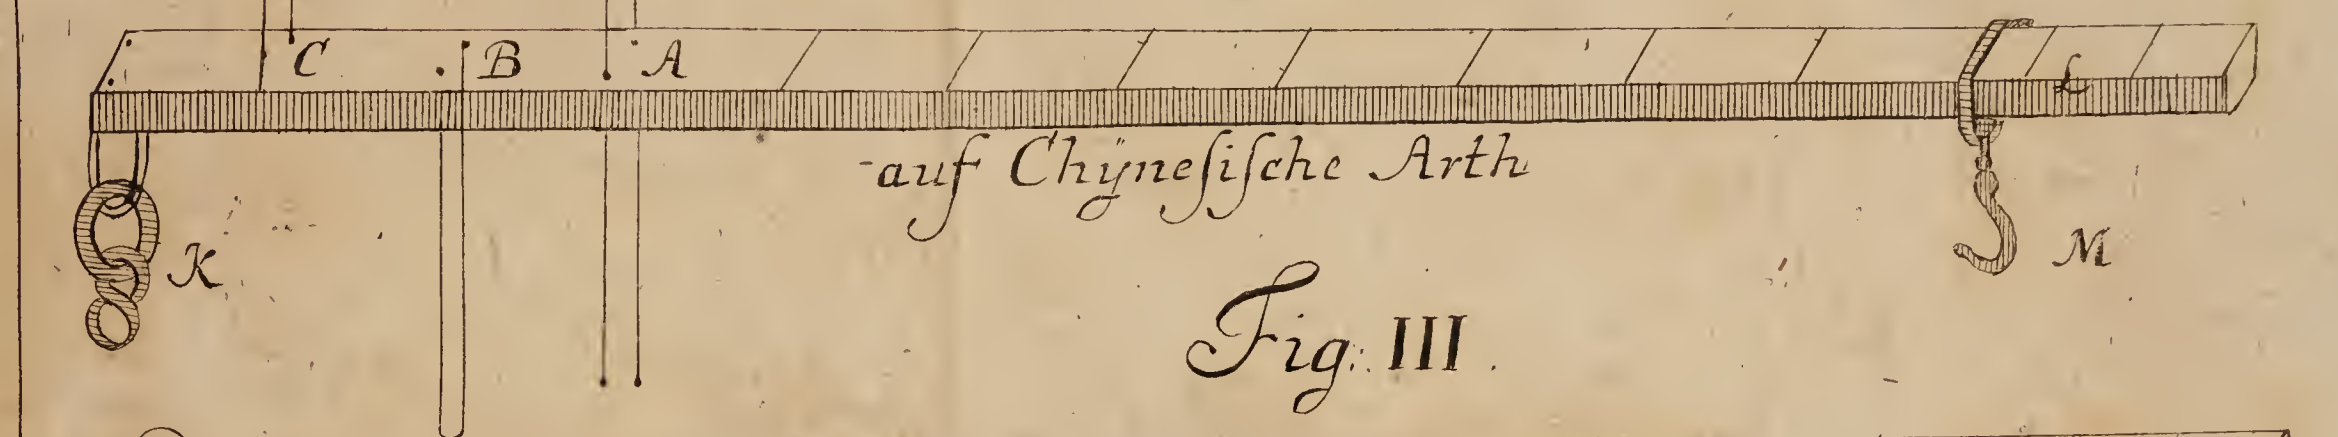 C B A L
-auf Chÿneſiſche Arth
K M
Fig: III.